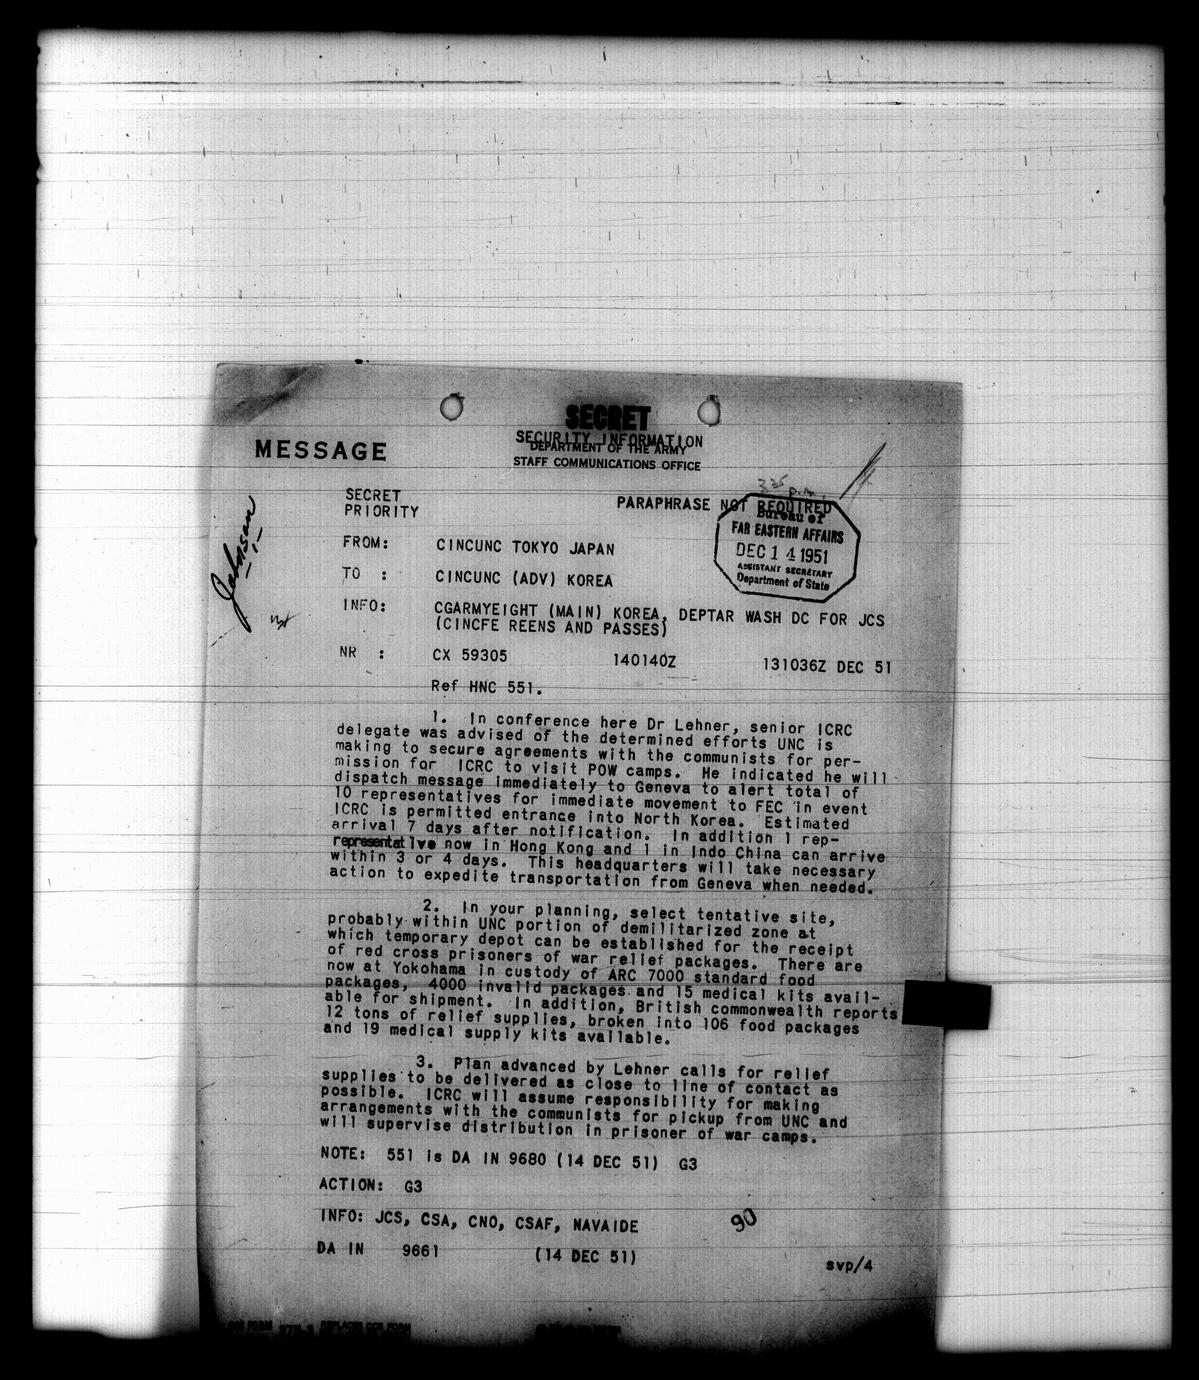 SECRET
SECURITY INFORMATION
MESSAGE
DEPARTMENT OF THE ARMY
STAFF COMMUNICATIONS OFFICE
335 p.m.
SECRET PARAPHRASE NOT REQUIRED
PRIORITY
Bureau of
FAR EASTERN AFFAIRS
DEC 14 1951
ASSISTANT SECRETARY
Department of State
Johnson
FROM: CINCUNC TOKYO JAPAN
TO : CINCUNC (ADV) KOREA
INFO: CGARMYEIGHT (MAIN) KOREA, DEPTAR WASH DC FOR JCS
(CINCFE REENS AND PASSES)
NR : CX 59305 140140Z 131036Z DEC 51
Ref HNC 551.
1. In conference here Dr Lehner, senior ICRC
delegate was advised of the determined efforts UNC is
making to secure agreements with the communists for per-
mission for ICRC to visit POW camps. He indicated he will
dispatch message immediately to Geneva to alert total of
10 representatives for immediate movement to FEC in event
ICRC is permitted entrance into North Korea. Estimated
arrival 7 days after notification. In addition 1 rep-
representative now in Hong Kong and 1 in Indo China can arrive
within 3 or 4 days. This headquarters will take necessary
action to expedite transportation from Geneva when needed.
2. In your planning, select tentative site,
probably within UNC portion of demilitarized zone at
which temporary depot can be established for the receipt
of red cross prisoners of war relief packages. There are
now at Yokohama in custody of ARC 7000 standard food
packages, 4000 invalid packages and 15 medical kits avail-
able for shipment. In addition, British commonwealth reports
12 tons of relief supplies, broken into 106 food packages
and 19 medical supply kits available.
3. Plan advanced by Lehner calls for relief
supplies to be delivered as close to line of contact as
possible. ICRC will assume responsibility for making
arrangements with the communists for pickup from UNC and
will supervise distribution in prisoner of war camps.
NOTE: 551 is DA IN 9680 (14 DEC 51) G3
ACTION: G3
INFO: JCS, CSA, CNO, CSAF, NAVAIDE
90
DA IN 9661 (14 DEC 51)
svp/4
REPLACES OCS FORM